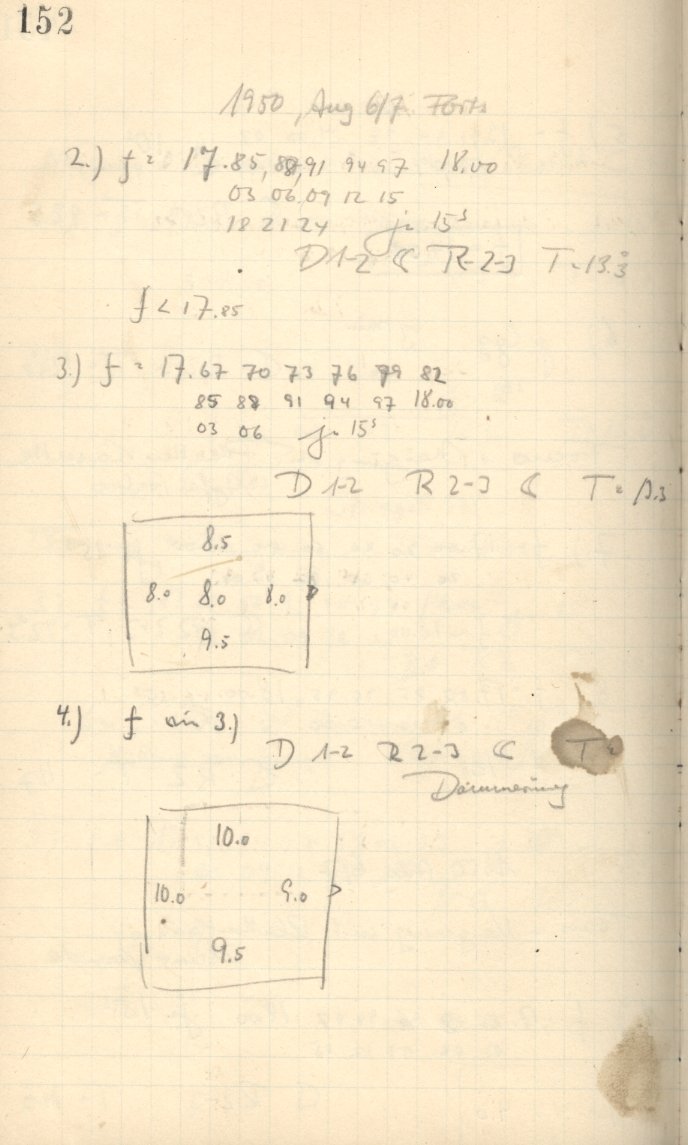 152
1950, Aug 6/7 Forts
2.) f = 17.85, 88, 91 94 97 18.00
03 06,09 12 15
18 21 24 je 15s
D 1-2 ☾ R-2-3 T = 13.°3
f < 17.85
3.) f = 17.67 70 73 76 79 82
85 88 91 94 97 18.00
03 06 je 15s
D 1-2 R 2-3 ☾ T = 13.3
8.5
8.0 8.0 8.0
9.5
4.) f wie 3.)
D 1-2 R 2-3 ☾ T =
Dämmerung
10.0
10.0 9.0
9.5